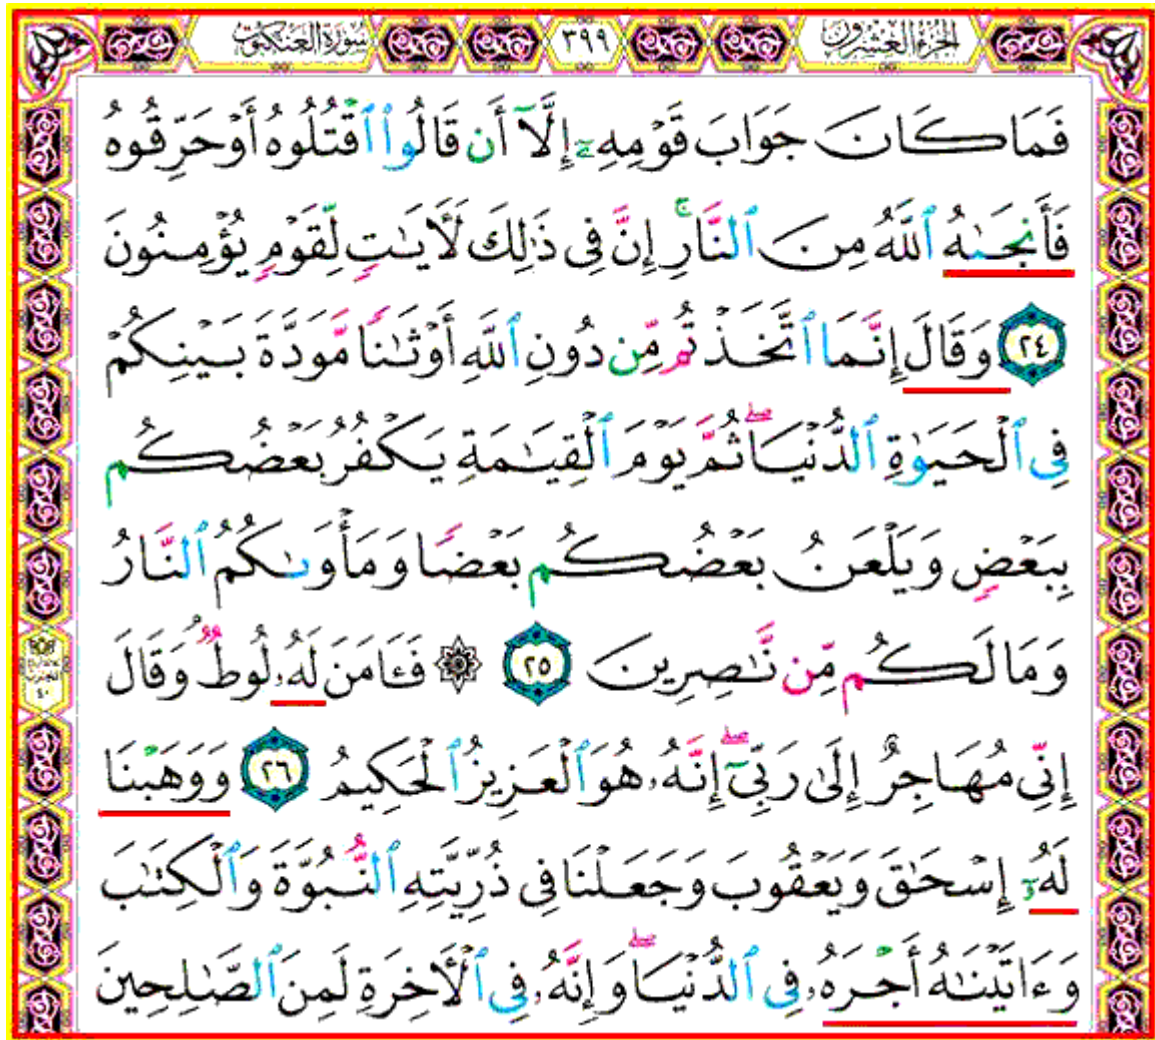 الجزء العشرون ٣٩٩ سورة العنكبوت
فَمَا كَانَ جَوَابَ قَوْمِهِۦٓ إِلَّآ أَن قَالُوا۟ ٱقْتُلُوهُ أَوْ حَرِّقُوهُ
فَأَنجَىٰهُ ٱللَّهُ مِنَ ٱلنَّارِ ۚ إِنَّ فِى ذَٰلِكَ لَـَٔايَـٰتٍ لِّقَوْمٍ يُؤْمِنُونَ
٢٤ وَقَالَ إِنَّمَا ٱتَّخَذْتُم مِّن دُونِ ٱللَّهِ أَوْثَـٰنًا مَّوَدَّةَ بَيْنِكُمْ
فِى ٱلْحَيَوٰةِ ٱلدُّنْيَا ۖ ثُمَّ يَوْمَ ٱلْقِيَـٰمَةِ يَكْفُرُ بَعْضُكُم
بِبَعْضٍ وَيَلْعَنُ بَعْضُكُم بَعْضًا وَمَأْوَىٰكُمُ ٱلنَّارُ
وَمَا لَكُم مِّن نَّـٰصِرِينَ ٢٥ ۞ فَـَٔامَنَ لَهُۥ لُوطٌ ۘ وَقَالَ
إِنِّى مُهَاجِرٌ إِلَىٰ رَبِّىٓ ۖ إِنَّهُۥ هُوَ ٱلْعَزِيزُ ٱلْحَكِيمُ ٢٦ وَوَهَبْنَا
لَهُۥٓ إِسْحَـٰقَ وَيَعْقُوبَ وَجَعَلْنَا فِى ذُرِّيَّتِهِ ٱلنُّبُوَّةَ وَٱلْكِتَـٰبَ
وَءَاتَيْنَـٰهُ أَجْرَهُۥ فِى ٱلدُّنْيَا ۖ وَإِنَّهُۥ فِى ٱلْـَٔاخِرَةِ لَمِنَ ٱلصَّـٰلِحِينَ